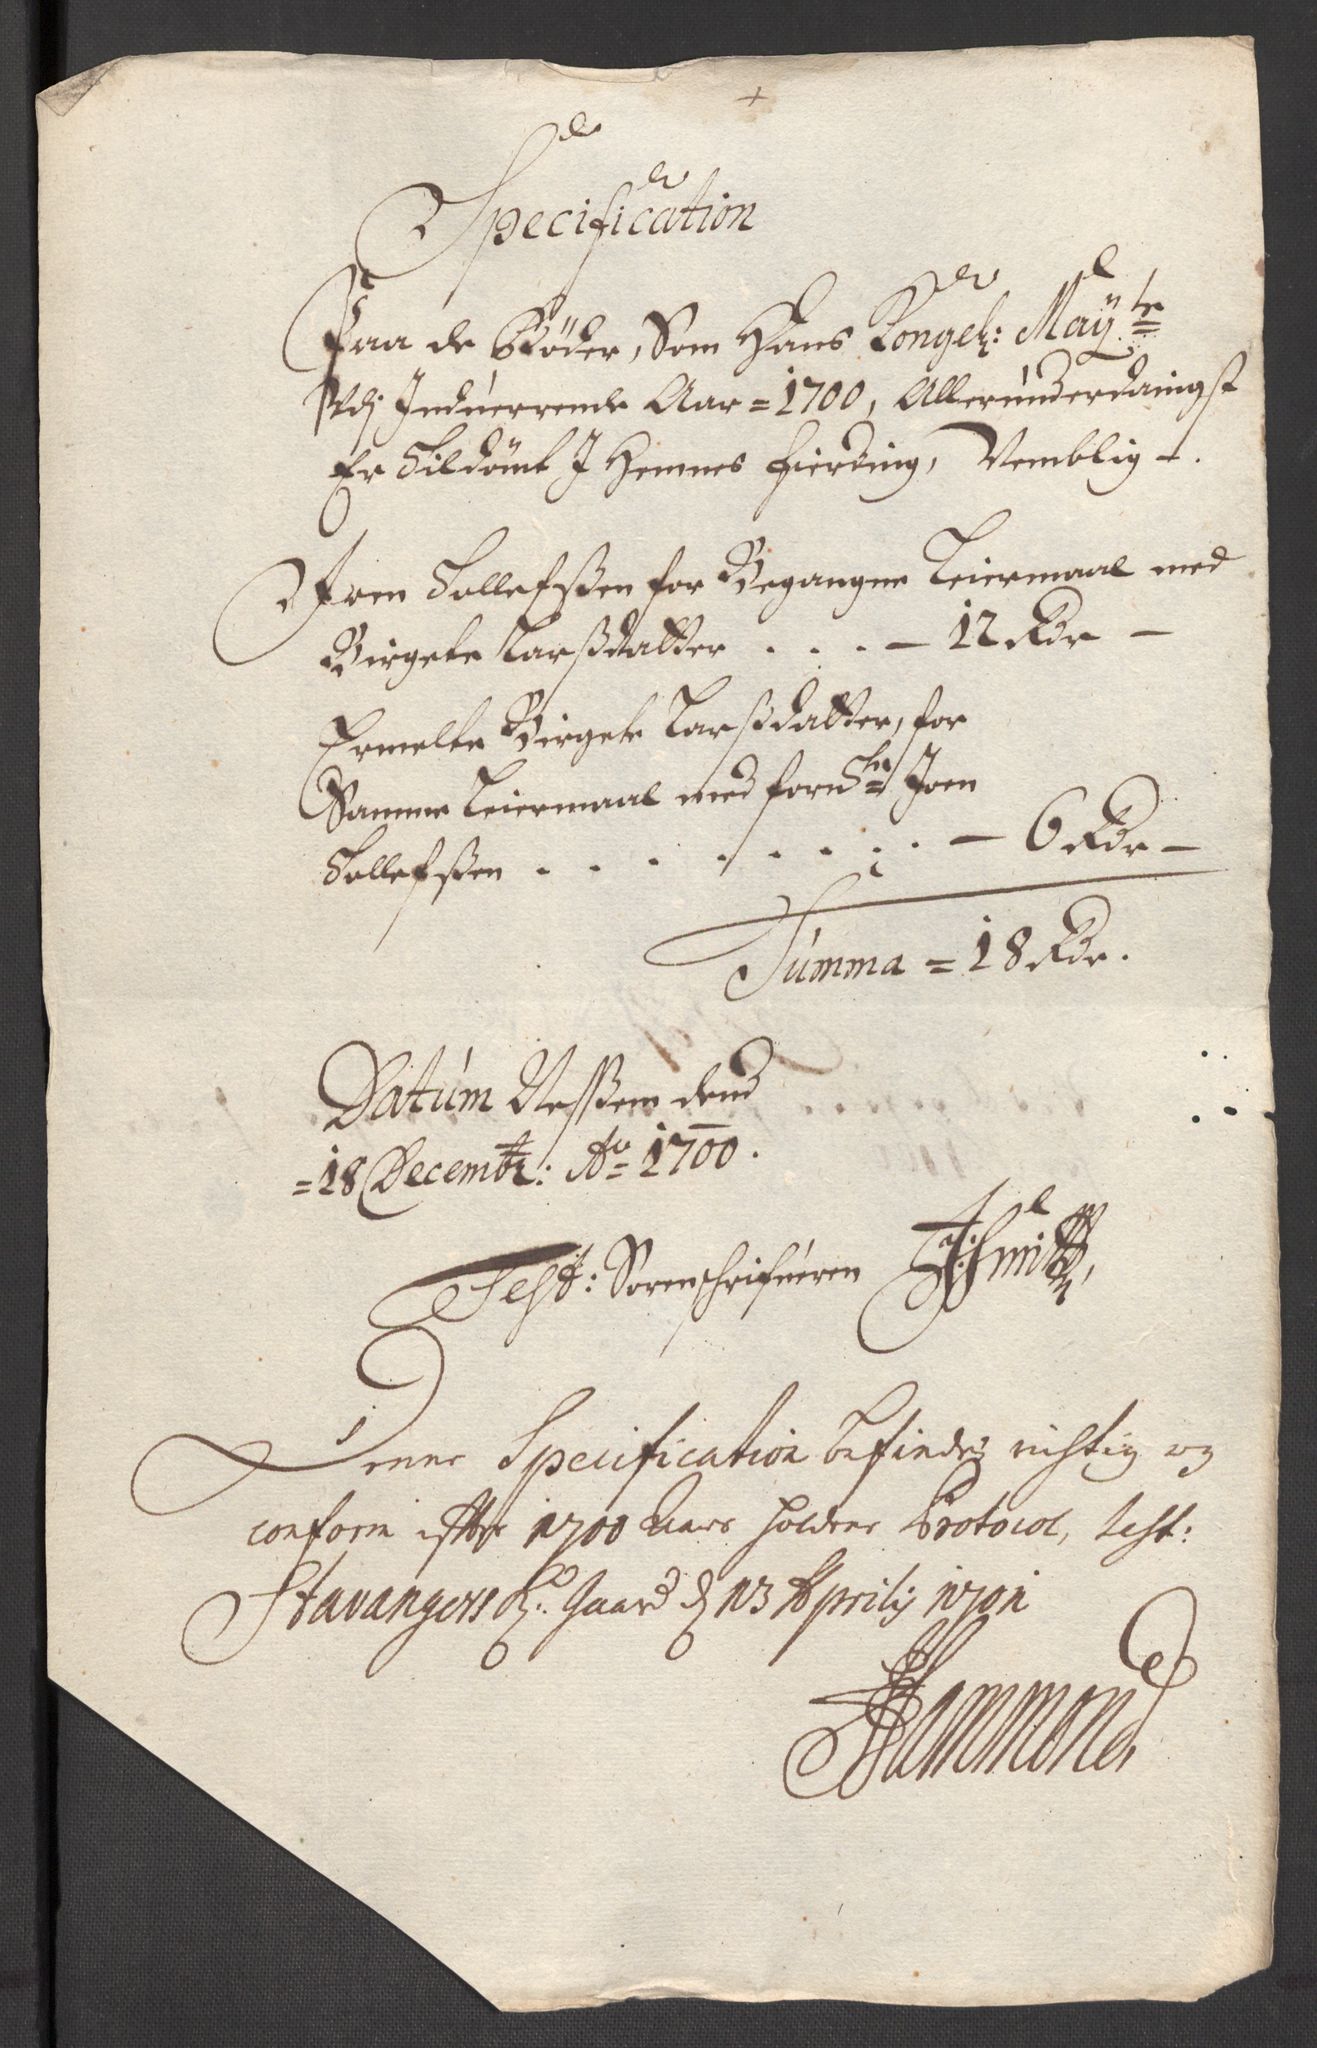 Specification
Paa de Bøder, Som Hans Kongel: Mayte
Udj Indnerrende Aar = 1700, Allerunderdanigst
Er Tildømt I Hemnes Fierding, Nemblig -.
Joen Tollefssen for Begangne Leiermaal med
Birgete Larssdatter . . . - 12 Rdr -
Ermelte Birgete Larssdatter, for
Samme Leiermaal med fornte Joen
Tollefssen . . . . . . . - 6 Rdr -
Summa = 18 Rdr.
Datum Nessem dend
= 18 Decembr: Ao = 1700.
Test: Sorenschrifueren Smitt,
Denne Specification befindes richtig og
conform efter 1700 Aars holdene Protocol, test:
Stavangers Gaard d 13 Aprilij 1701
Hammond